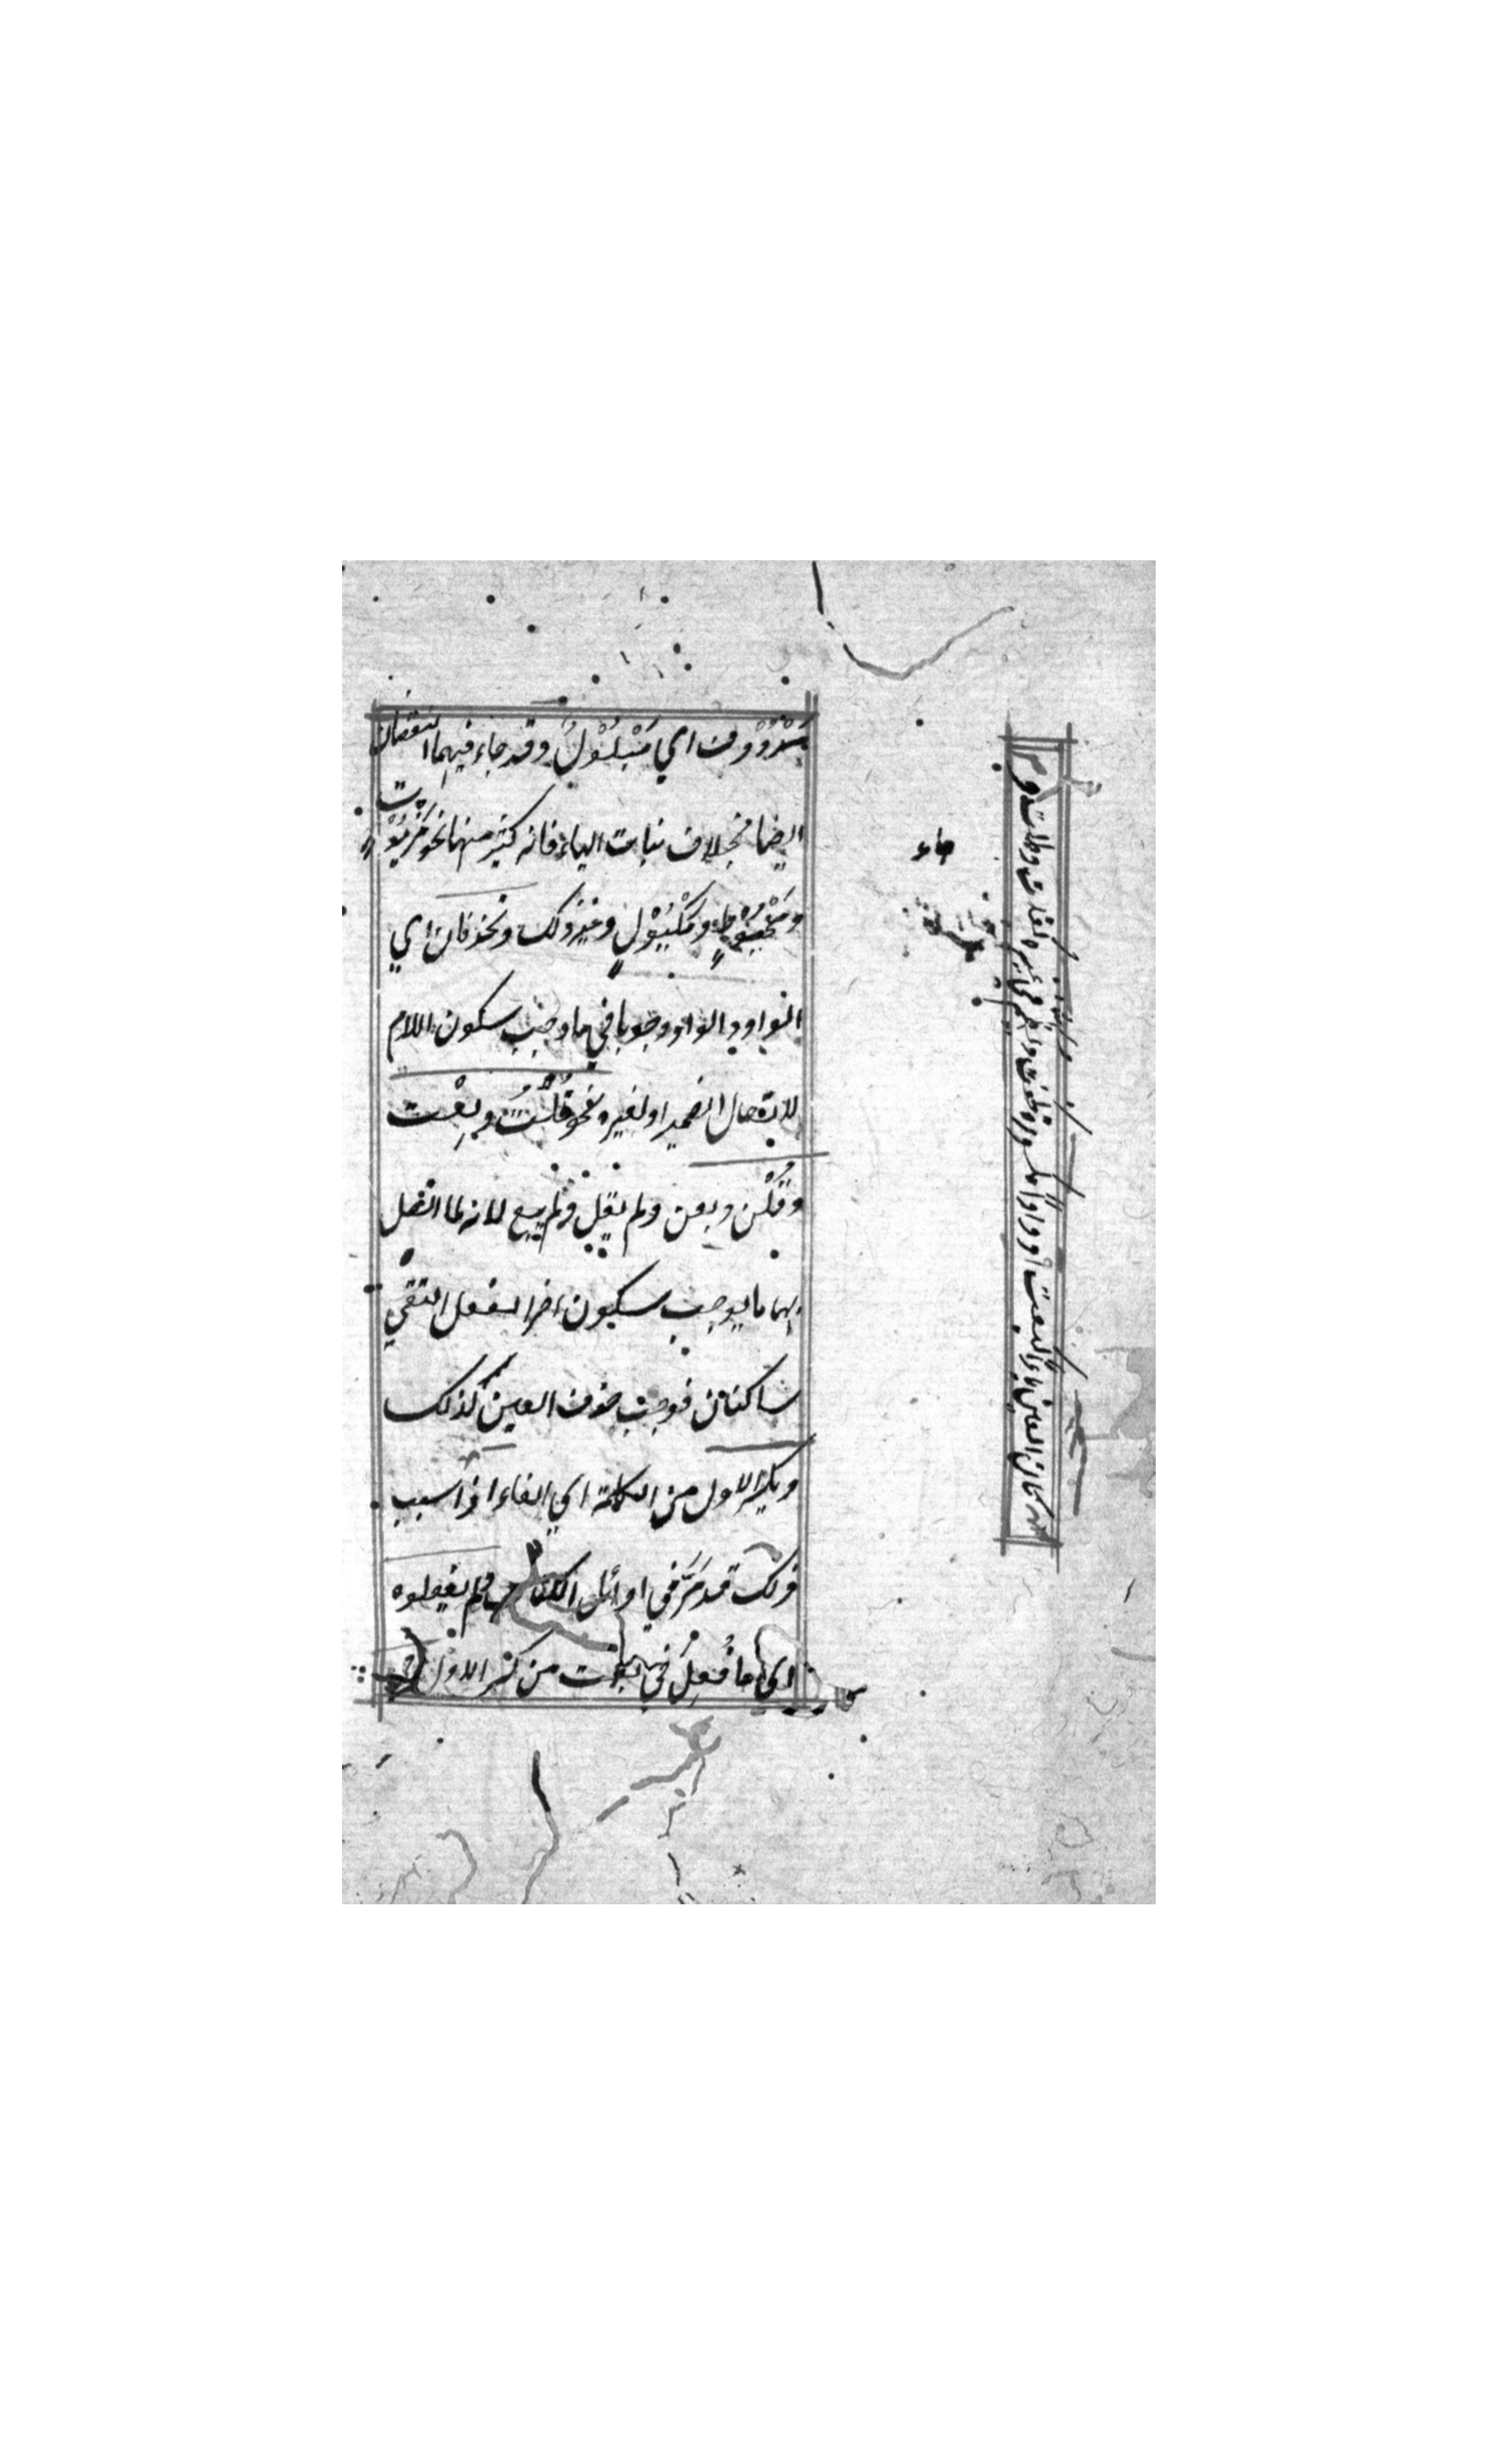 مدووف اي مبلول وقد جاء فيهما النقصان
ايضا بخلاف نبات الياء فانه كثير منهما نحو مزيوت
ومخيوط ومكيول وغير ذلك وتحذفان اي
الواو و الواو وجوبا في ما وجب سكون اللام
لاتصال الضمير او لغيره نحو قلت وبعت
وقلن وبعن ولم يقل ولم يبع لانه لما اتصل
بهما ما يوجب سكون اخر الفعل التقي
ساكنان فوجب حذف العين كذلك
ويكسر الاول من الكلمة اي الفاء اذا
ذلك قد مر في اوائل الكتاب ولم يفعلوه
اي ما فعل في بعت من كسر الاول في
جاء
ان كان العين ياء كبعت او واوا مكسورة كخفت